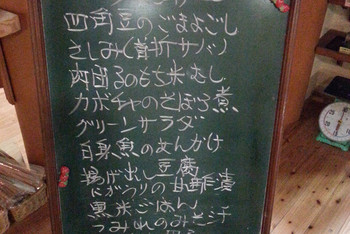 四角豆のごまよごし
さしみく
肉団子のもち米むし
カボチャのそぼろ煮
グリーンサラダ
白身魚のあんかけ
揚げ出し豆腐
の甘酢漬
黒米ごはん
つみれのみそ汁